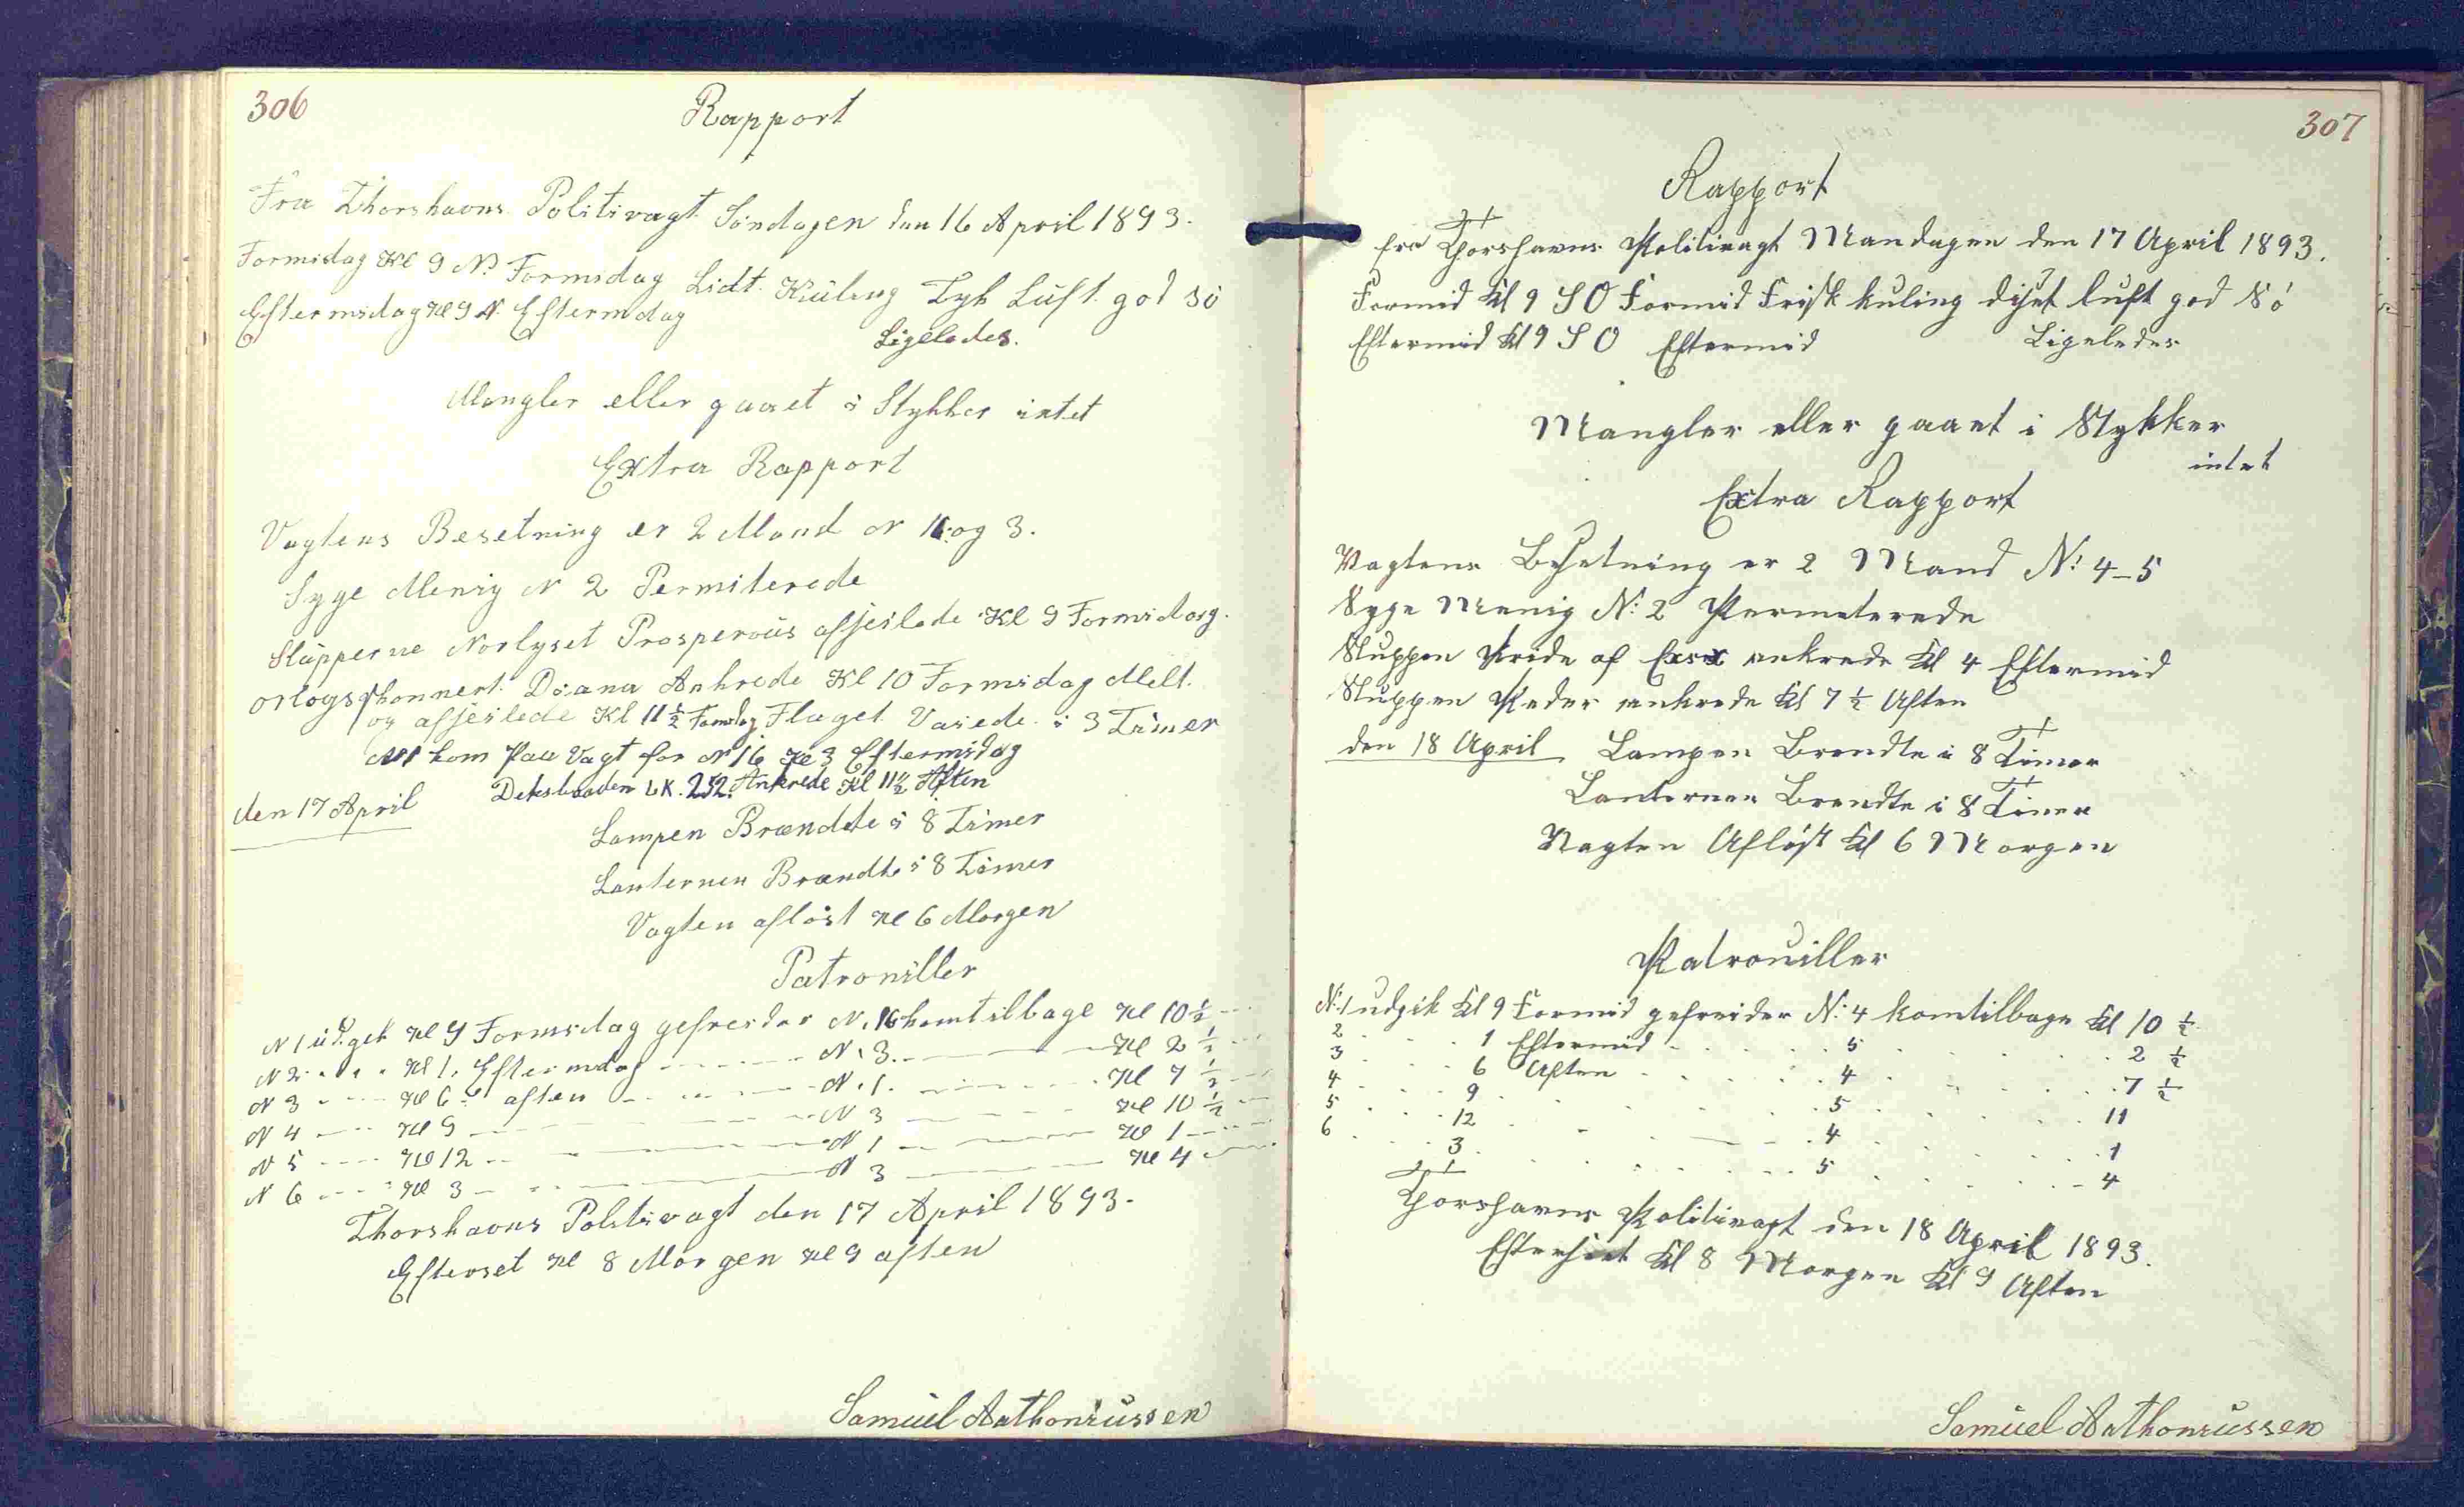 306
Rapport
Fra Thorshavns Politivagt Söndagen den 16 April 1893.
Formidag Kl 9 N. Formidag Lidt Kuling Tyk Luft god Sö
Eftermidag Kl 9 N. Eftermidag Ligeledes.
Mangler eller gaaet i Stykker intet
Extra Rapport
Vagtens Besetning er 2 Mand N 16 og 3.
Syge Menig N 2 Permiterede
Slupperne Norlyset Prosperous afseilede Kl 9 Formidag.
orlogsskonnert Diana Ankrede Kl 10 Formidag Melt.
og afseilede Kl 11½ Formdag Flaget Vaiede i 3 Timer
N 1 kom paa Vagt for N 16 Kl 3 Eftermidag
Deksbaaden LK. 252. Ankrede Kl 11½ Aften
den 17 April
Lampen Brændte i 8 Timer
Lanternen Brændte i 8 Timer
Vagten aflöst Kl 6 Morgen
Patrouiller
N 1 udgek Kl 9 Formidag gefreider N. 16 komtilbage Kl 10½
N 2 Kl 1. Eftermdag N. 3. Kl 2½
N 3 Kl 6 aften N. 1. Kl 7½
N 4 Kl 9 N 3 Kl 10½
N 5 Kl 12 N 1 Kl 1
N 6 Kl 3 N 3 Kl 4
Thorshavns Politivagt den 17 April 1893.
Efterset Kl 8 Morgen Kl 9 aften
Samuel Anthoniussen
307
Rapport
fra Thorshavns Politivagt Mandagen den 17 April 1893.
Formid Kl 9 SO Formid Frisk kuling diset luft god Sö
Eftermid Kl 9 SO Eftermid Ligeledes
Mangler eller gaaet i Stykker
intet
Extra Rapport
Vagtens Besetning er 2 Mand N: 4-5
Syge Menig N: 2 Permeterede
Sluppen Pride of ankrede Kl 4 Eftermid
Sluppen Peder ankrede Kl 7½ Aften
den 18 April Lampen Brendte i 8 Timer
Lanternen Brendte i 8 Timer
Vagten Aflöst Kl 6 Morgen
Patrouiller
N: 1 udgik Kl 9 Formid gefreider N: 4 komtilbage Kl 10½
2 1 Eftermid 5 2½
3 6 Aften 4 7½
4 9 5 11
5 12 4 1
6 3 5 4
Thorshavns Politivagt den 18 April 1893.
Eftersiet Kl 8 Morgen Kl 9 Aften
Samuel Anthoniussen